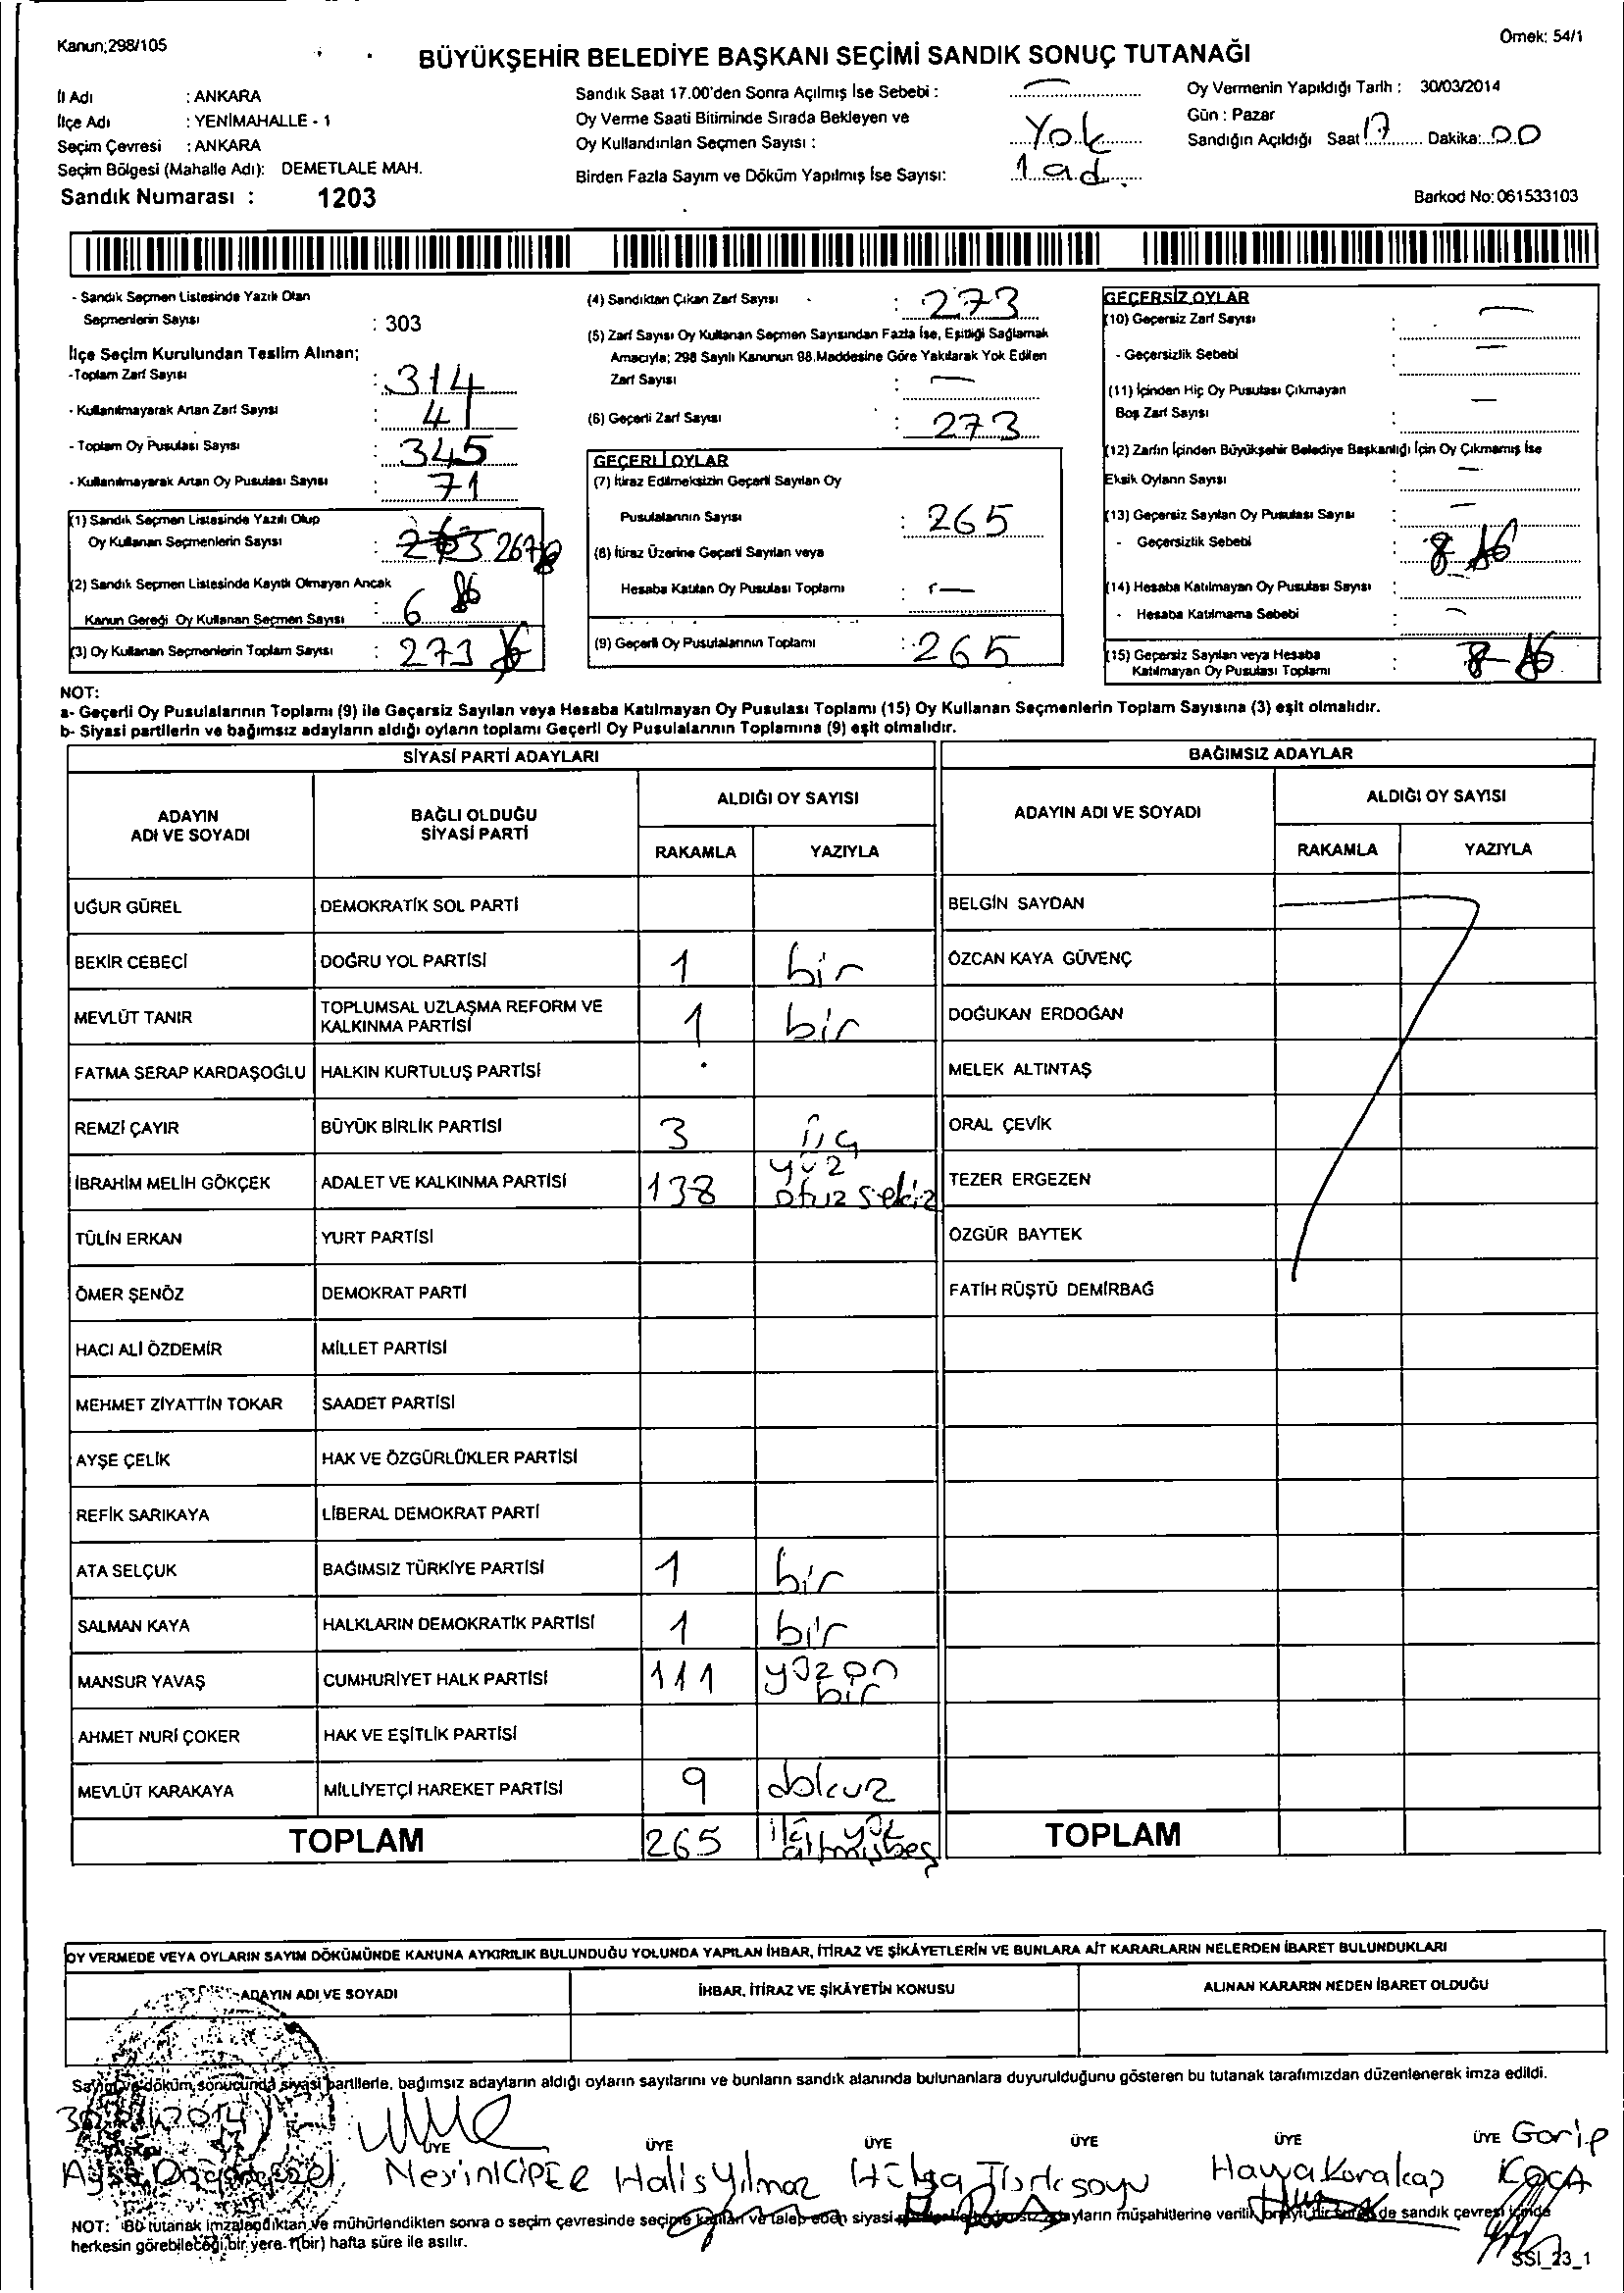 Kanun;298/105
Örnek: 54/1
BÜYÜKŞEHİR BELEDİYE BAŞKANI SEÇİMİ SANDIK SONUÇ TUTANAĞI
İl Adı : ANKARA
İlçe Adı : YENİMAHALLE - 1
Seçim Çevresi : ANKARA
Seçim Bölgesi (Mahalle Adı): DEMETLALE MAH.
Sandık Numarası : 1203
Sandık Saat 17.00'den Sonra Açılmış İse Sebebi : —
Oy Verme Saati Bitiminde Sırada Bekleyen ve
Oy Kullandırılan Seçmen Sayısı : Yok
Birden Fazla Sayım ve Döküm Yapılmış İse Sayısı: 1 ad.
Oy Vermenin Yapıldığı Tarih : 30/03/2014
Gün : Pazar
Sandığın Açıldığı Saat 17 Dakika: 00
Barkod No: 061533103
- Sandık Seçmen Listesinde Yazılı Olan
Seçmenlerin Sayısı : 303
İlçe Seçim Kurulundan Teslim Alınan;
-Toplam Zarf Sayısı : 314
- Kullanılmayarak Artan Zarf Sayısı : 41
- Toplam Oy Pusulası Sayısı : 345
- Kullanılmayarak Artan Oy Pusulası Sayısı : 71
(1) Sandık Seçmen Listesinde Yazılı Olup
Oy Kullanan Seçmenlerin Sayısı : 267
(2) Sandık Seçmen Listesinde Kayıtlı Olmayan Ancak
Kanun Gereği Oy Kullanan Seçmen Sayısı : 6
(3) Oy Kullanan Seçmenlerin Toplam Sayısı : 273
(4) Sandıktan Çıkan Zarf Sayısı : 273
(5) Zarf Sayısı Oy Kullanan Seçmen Sayısından Fazla İse, Eşitliği Sağlamak
Amacıyla; 298 Sayılı Kanunun 98.Maddesine Göre Yakılarak Yok Edilen
Zarf Sayısı : —
(6) Geçerli Zarf Sayısı : 273
GEÇERLİ OYLAR
(7) İtiraz Edilmeksizin Geçerli Sayılan Oy
Pusulalarının Sayısı : 265
(8) İtiraz Üzerine Geçerli Sayılan veya
Hesaba Katılan Oy Pusulası Toplamı : —
(9) Geçerli Oy Pusulalarının Toplamı : 265
GEÇERSİZ OYLAR
(10) Geçersiz Zarf Sayısı : —
- Geçersizlik Sebebi : —
(11) İçinden Hiç Oy Pusulası Çıkmayan
Boş Zarf Sayısı : —
(12) Zarfın İçinden Büyükşehir Belediye Başkanlığı İçin Oy Çıkmamış İse
Eksik Oyların Sayısı : —
(13) Geçersiz Sayılan Oy Pusulası Sayısı : —
- Geçersizlik Sebebi : 8
(14) Hesaba Katılmayan Oy Pusulası Sayısı :
- Hesaba Katılmama Sebebi : —
(15) Geçersiz Sayılan veya Hesaba
Katılmayan Oy Pusulası Toplamı : 8
NOT:
a- Geçerli Oy Pusulalarının Toplamı (9) ile Geçersiz Sayılan veya Hesaba Katılmayan Oy Pusulası Toplamı (15) Oy Kullanan Seçmenlerin Toplam Sayısına (3) eşit olmalıdır.
b- Siyasi partilerin ve bağımsız adayların aldığı oyların toplamı Geçerli Oy Pusulalarının Toplamına (9) eşit olmalıdır.
SİYASİ PARTİ ADAYLARI BAĞIMSIZ ADAYLAR
ADAYIN ADI VE SOYADI BAĞLI OLDUĞU SİYASİ PARTİ ALDIĞI OY SAYISI ADAYIN ADI VE SOYADI ALDIĞI OY SAYISI
RAKAMLA YAZIYLA RAKAMLA YAZIYLA
UĞUR GÜREL DEMOKRATİK SOL PARTİ BELGİN SAYDAN
BEKİR CEBECİ DOĞRU YOL PARTİSİ 1 bir ÖZCAN KAYA GÜVENÇ
MEVLÜT TANIR TOPLUMSAL UZLAŞMA REFORM VE KALKINMA PARTİSİ 1 bir DOĞUKAN ERDOĞAN
FATMA SERAP KARDAŞOĞLU HALKIN KURTULUŞ PARTİSİ MELEK ALTINTAŞ
REMZİ ÇAYIR BÜYÜK BİRLİK PARTİSİ 3 üç ORAL ÇEVİK
İBRAHİM MELİH GÖKÇEK ADALET VE KALKINMA PARTİSİ 138 yüz otuz sekiz TEZER ERGEZEN
TÜLİN ERKAN YURT PARTİSİ ÖZGÜR BAYTEK
ÖMER ŞENÖZ DEMOKRAT PARTİ FATİH RÜŞTÜ DEMİRBAĞ
HACI ALİ ÖZDEMİR MİLLET PARTİSİ
MEHMET ZİYATTİN TOKAR SAADET PARTİSİ
AYŞE ÇELİK HAK VE ÖZGÜRLÜKLER PARTİSİ
REFİK SARIKAYA LİBERAL DEMOKRAT PARTİ
ATA SELÇUK BAĞIMSIZ TÜRKİYE PARTİSİ 1 bir
SALMAN KAYA HALKLARIN DEMOKRATİK PARTİSİ 1 bir
MANSUR YAVAŞ CUMHURİYET HALK PARTİSİ 111 yüz on bir
AHMET NURİ ÇOKER HAK VE EŞİTLİK PARTİSİ
MEVLÜT KARAKAYA MİLLİYETÇİ HAREKET PARTİSİ 9 dokuz
TOPLAM 265 iki yüz altmışbeş TOPLAM
OY VERMEDE VEYA OYLARIN SAYIM DÖKÜMÜNDE KANUNA AYKIRILIK BULUNDUĞU YOLUNDA YAPILAN İHBAR, İTİRAZ VE ŞİKÂYETLERİN VE BUNLARA AİT KARARLARIN NELERDEN İBARET BULUNDUKLARI
ADAYIN ADI VE SOYADI İHBAR, İTİRAZ VE ŞİKÂYETİN KONUSU ALINAN KARARIN NEDEN İBARET OLDUĞU
Sayım ve döküm sonucunda siyasi partilerle, bağımsız adayların aldığı oyların sayılarını ve bunların sandık alanında bulunanlara duyurulduğunu gösteren bu tutanak tarafımızdan düzenlenerek imza edildi.
BAŞKAN ÜYE ÜYE ÜYE ÜYE ÜYE ÜYE Garip
Ayşe Halis Yılmaz Hülya Türksoyu Havva Karakap KOCA
NOT: Bu tutanak imzalandıktan ve mühürlendikten sonra o seçim çevresinde seçime katılan ve talep eden siyasi adayların müşahitlerine verilir, sandık çevresi içinde
herkesin görebileceği bir yere 1(bir) hafta süre ile asılır.
SSI_23_1